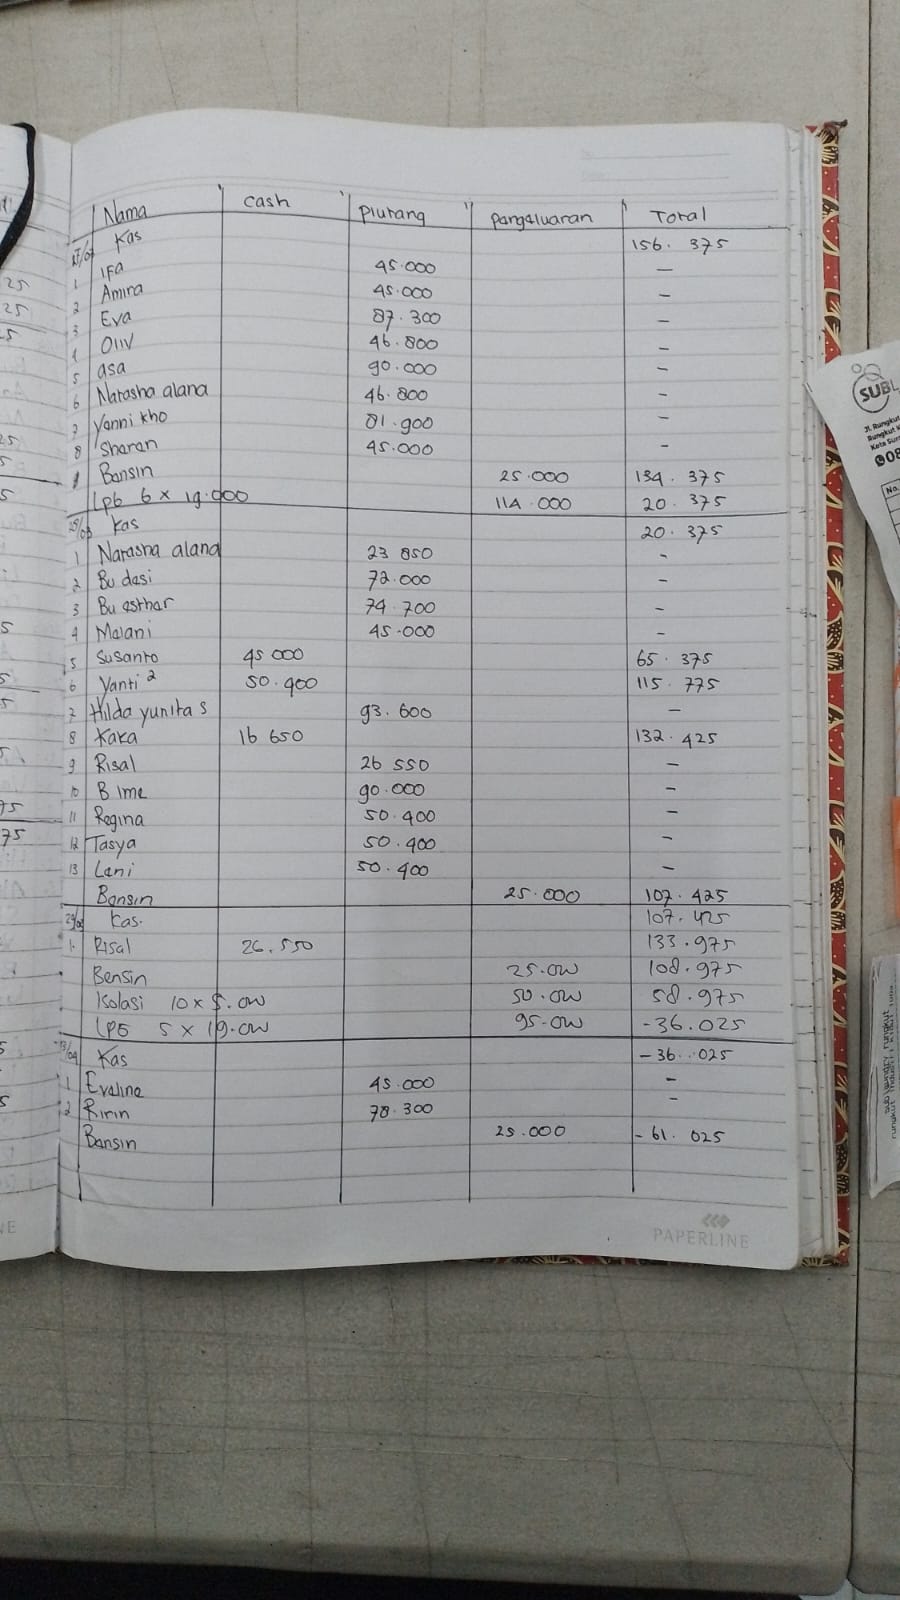 Nama cash Piutang Pengeluaran Total
27/03 Kas 156.375
1 IFA 45.000 -
2 Amira 45.000 -
3 Eva 87.300 -
4 Oliv 46.800 -
5 asa 90.000 -
6 Natasha alana 46.800 -
7 Yanni kho 81.900 -
8 Sharen 45.000 -
Bensin 25.000 134.375
Lpg 6 x 19.000 114.000 20.375
28/03 Kas 20.375
1 Natasha alana 23 850 -
2 Bu desi 72.000 -
3 Bu esther 74.700 -
4 Melani 45.000 -
5 Susanto 45 000 65.375
6 Yanti 2 50.400 115.775
7 Hilda yunita s 93.600 -
8 Kaka 16 650 132.425
9 Risal 26 550 -
10 B ime 90.000 -
11 Regina 50.400 -
12 Tasya 50.400 -
13 Leni 50.400 -
Bensin 25.000 107.425
29/03 Kas. 107.425
1. Risal 26.550 133.975
Bensin 25.000 108.975
Isolasi 10 x 5.000 50.000 58.975
LPG 5 x 19.000 95.000 -36.025
Kas -36.025
1 Eveline 45.000 -
2 Ririn 78.300 -
Bensin 25.000 -61.025
PAPERLINE
SUBL
Jl. Rungkut
Rungkut K
Kota Sur
08
No.